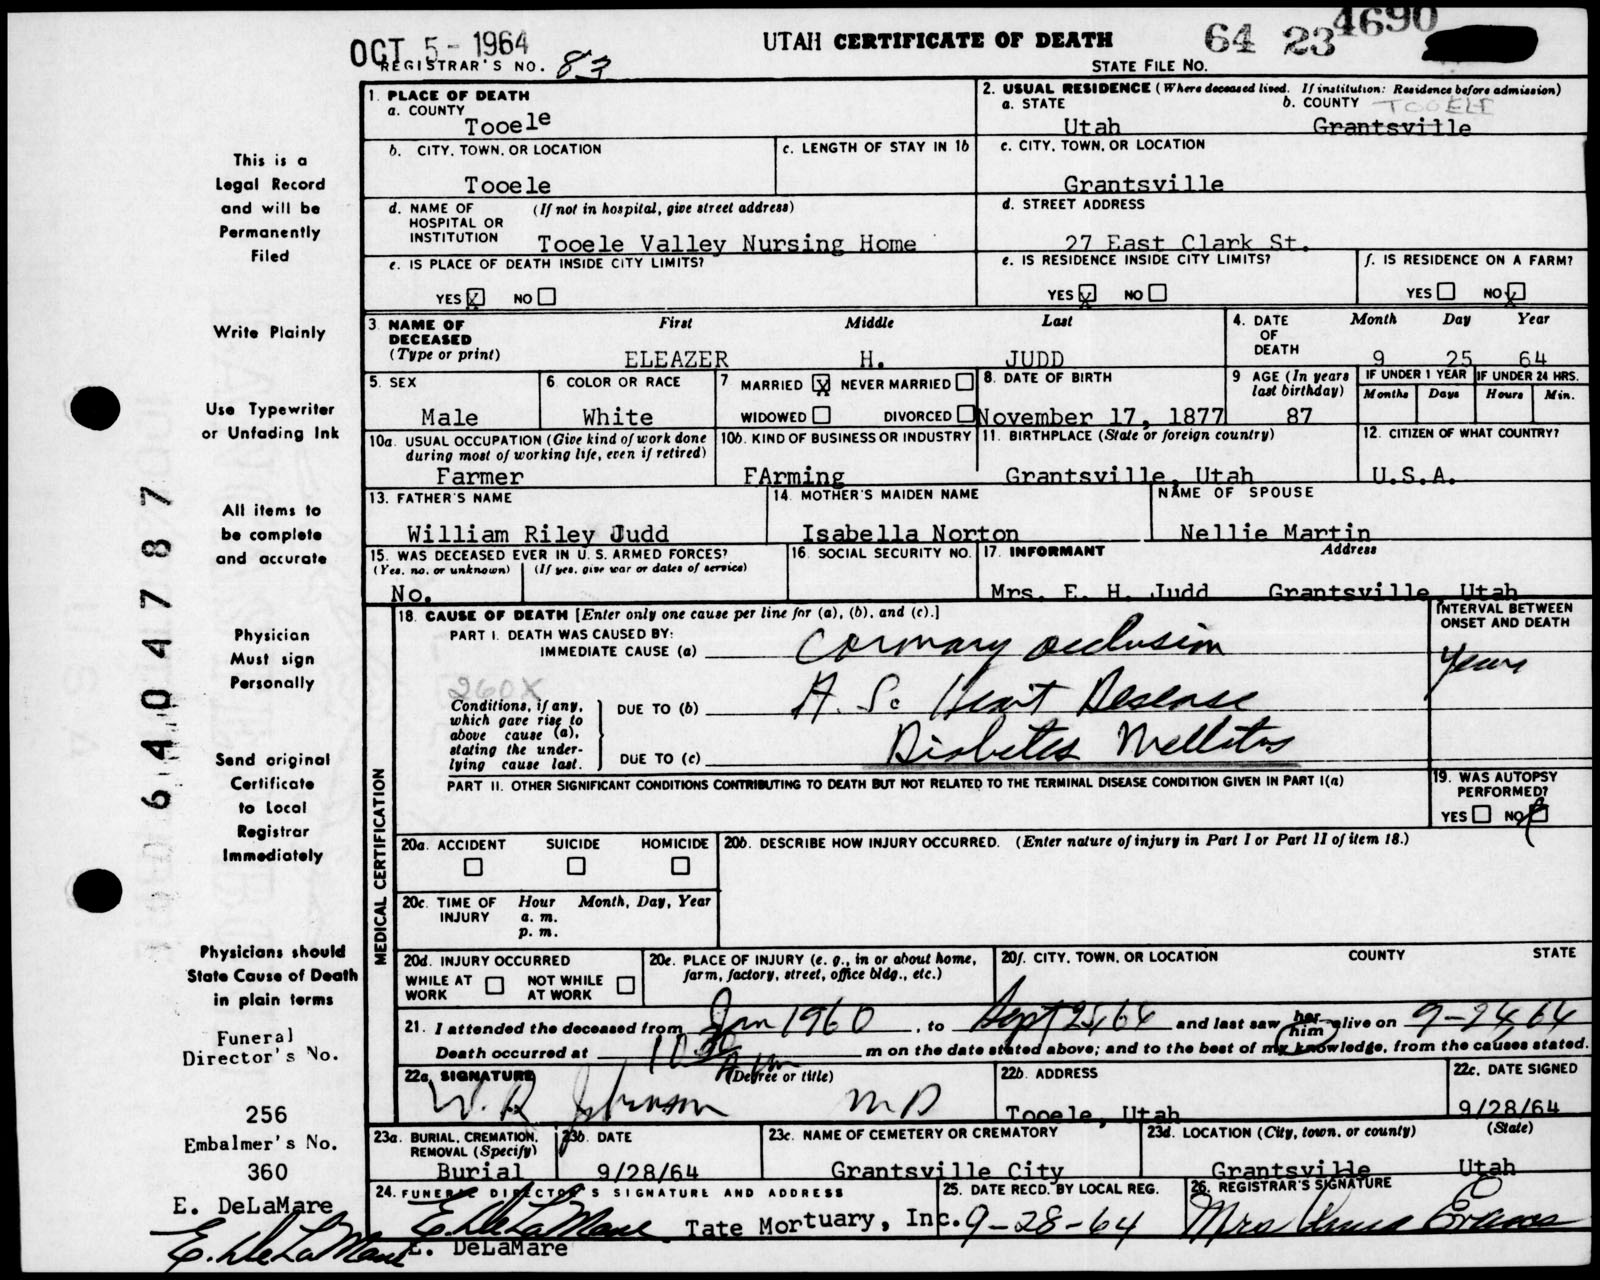 OCT 5 - 1964
REGISTRAR'S NO. 83
UTAH CERTIFICATE OF DEATH
64 23 4690
STATE FILE NO.
1. PLACE OF DEATH
a. COUNTY
Tooele
2. USUAL RESIDENCE (Where deceased lived. If institution: Residence before admission)
a. STATE b. COUNTY TOOELE
Utah Grantsville
b. CITY, TOWN, OR LOCATION
Tooele
c. LENGTH OF STAY IN 1b
c. CITY, TOWN, OR LOCATION
Grantsville
d. NAME OF HOSPITAL OR INSTITUTION (If not in hospital, give street address)
Tooele Valley Nursing Home
d. STREET ADDRESS
27 East Clark St.
e. IS PLACE OF DEATH INSIDE CITY LIMITS?
YES X NO
e. IS RESIDENCE INSIDE CITY LIMITS?
YES X NO
f. IS RESIDENCE ON A FARM?
YES NO X
3. NAME OF DECEASED (Type or print)
First Middle Last
ELEAZER H. JUDD
4. DATE OF DEATH
Month Day Year
9 25 64
5. SEX
Male
6. COLOR OR RACE
White
7 MARRIED X NEVER MARRIED
WIDOWED DIVORCED
8. DATE OF BIRTH
November 17, 1877
9 AGE (In years last birthday)
87
IF UNDER 1 YEAR
Months Days
IF UNDER 24 HRS.
Hours Min.
10a. USUAL OCCUPATION (Give kind of work done during most of working life, even if retired)
Farmer
10b. KIND OF BUSINESS OR INDUSTRY
FArming
11. BIRTHPLACE (State or foreign country)
Grantsville, Utah
12. CITIZEN OF WHAT COUNTRY?
U.S.A.
13. FATHER'S NAME
William Riley Judd
14. MOTHER'S MAIDEN NAME
Isabella Norton
NAME OF SPOUSE
Nellie Martin
15. WAS DECEASED EVER IN U. S. ARMED FORCES?
(Yes, no, or unknown) (If yes, give war or dates of service)
No.
16. SOCIAL SECURITY NO.
17. INFORMANT Address
Mrs. E. H. Judd Grantsville, Utah
MEDICAL CERTIFICATION
18. CAUSE OF DEATH [Enter only one cause per line for (a), (b), and (c).]
PART I. DEATH WAS CAUSED BY:
IMMEDIATE CAUSE (a) Coronary occlusion
INTERVAL BETWEEN ONSET AND DEATH
years
260X
Conditions, if any, which gave rise to above cause (a), stating the underlying cause last.
DUE TO (b) A. S. Heart Desease
DUE TO (c) Diabetes Mellitus
PART II. OTHER SIGNIFICANT CONDITIONS CONTRIBUTING TO DEATH BUT NOT RELATED TO THE TERMINAL DISEASE CONDITION GIVEN IN PART I(a)
19. WAS AUTOPSY PERFORMED?
YES NO
20a. ACCIDENT SUICIDE HOMICIDE
20b. DESCRIBE HOW INJURY OCCURRED. (Enter nature of injury in Part I or Part II of item 18.)
20c. TIME OF INJURY
Hour Month, Day, Year
a. m.
p. m.
20d. INJURY OCCURRED
WHILE AT WORK NOT WHILE AT WORK
20e. PLACE OF INJURY (e. g., in or about home, farm, factory, street, office bldg., etc.)
20f. CITY, TOWN, OR LOCATION COUNTY STATE
21. I attended the deceased from Jan 1960, to Sept 25, 64 and last saw her him alive on 9-24, 64
Death occurred at 10 30 A m m on the date stated above; and to the best of my knowledge, from the causes stated.
22a. SIGNATURE (Degree or title)
W. R Johnson MD
22b. ADDRESS
Tooele, Utah
22c. DATE SIGNED
9/28/64
23a. BURIAL, CREMATION, REMOVAL (Specify)
Burial
23b. DATE
9/28/64
23c. NAME OF CEMETERY OR CREMATORY
Grantsville City
23d. LOCATION (City, town, or county) (State)
Grantsville Utah
24. FUNERAL DIRECTOR'S SIGNATURE AND ADDRESS
E. DeLaMare Tate Mortuary, Inc.
E. DeLaMare
25. DATE RECD. BY LOCAL REG.
9-28-64
26. REGISTRAR'S SIGNATURE
Mrs Evans
This is a
Legal Record
and will be
Permanently
Filed
Write Plainly
Use Typewriter
or Unfading Ink
All items to
be complete
and accurate
Physician
Must sign
Personally
Send original
Certificate
to Local
Registrar
Immediately
Physicians should
State Cause of Death
in plain terms
Funeral
Director's No.
256
Embalmer's No.
360
E. DeLaMare
E. DeLaMare
6404787